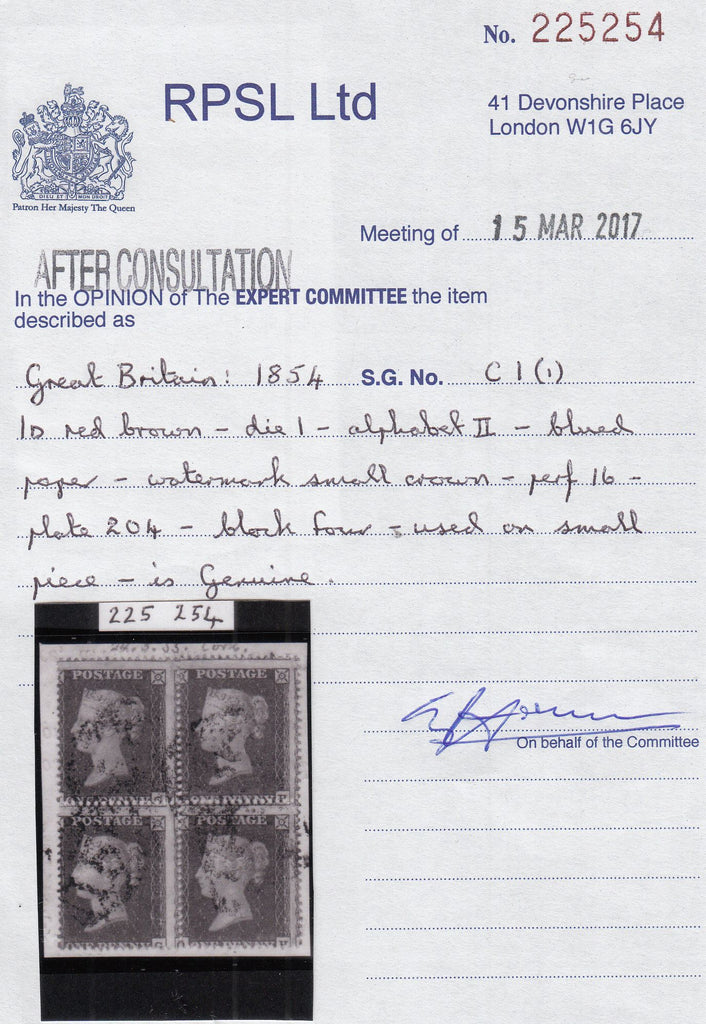 No. 225254
RPSL Ltd
41 Devonshire Place
London W1G 6JY
DIEU ET MON DROIT
Patron Her Majesty The Queen
Meeting of 15 MAR 2017
AFTER CONSULTATION
In the OPINION of The EXPERT COMMITTEE the item
described as
Great Britain: 1854 S.G. No. C1(1)
1D red brown - die 1 - alphabet II - blued
paper - watermark small crown - perf 16 -
plate 204 - block four - used on small
piece - is Genuine.
225 254
POSTAGE POSTAGE
ONE PENNY
POSTAGE POSTAGE
ONE PENNY ONE PENNY
On behalf of the Committee